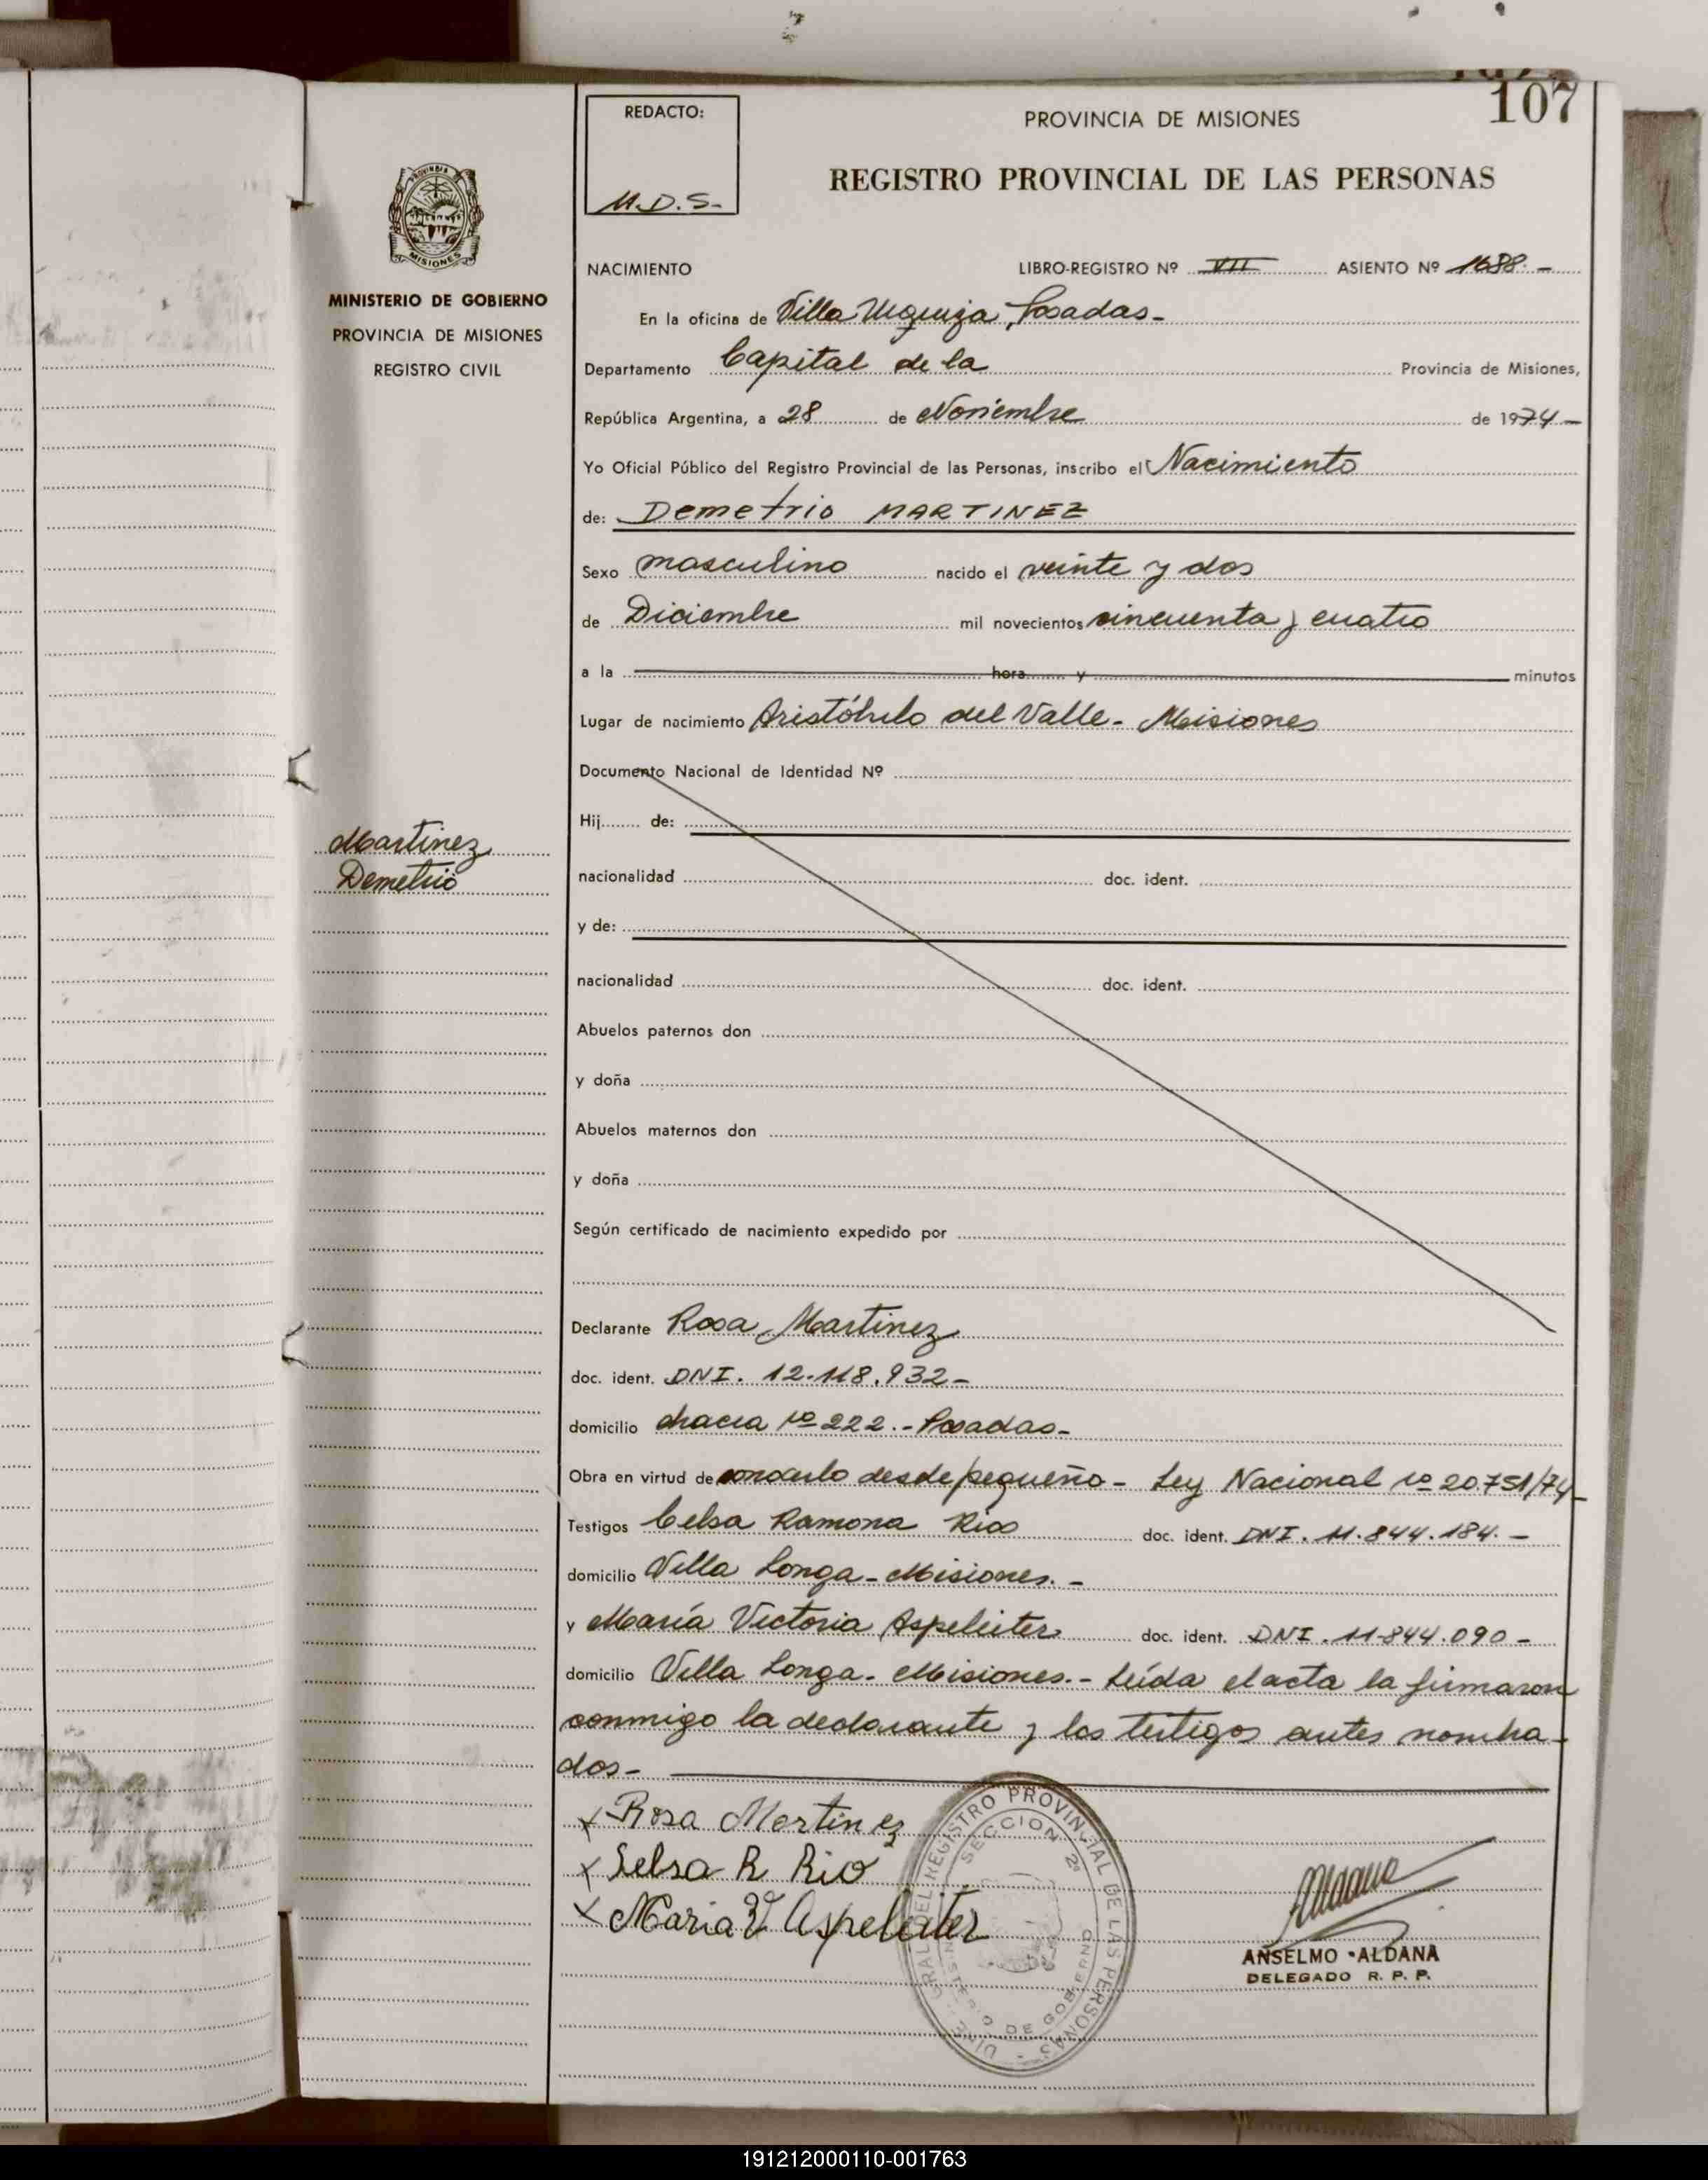 107
REDACTO:
M.D.S.-
PROVINCIA DE MISIONES
REGISTRO PROVINCIAL DE LAS PERSONAS
PROVINCIA DE
MISIONES
MINISTERIO DE GOBIERNO
PROVINCIA DE MISIONES
REGISTRO CIVIL
Martinez
Demetrio
NACIMIENTO LIBRO-REGISTRO Nº VII ASIENTO Nº 1688.-
En la oficina de Villa Urquiza, Posadas-
Departamento Capital de la Provincia de Misiones,
República Argentina, a 28 de Noviembre de 1974-
Yo Oficial Público del Registro Provincial de las Personas, inscribo el Nacimiento
de: Demetrio MARTINEZ
Sexo masculino nacido el veinte y dos
de Diciembre mil novecientos cincuenta y cuatro
a la hora y minutos
Lugar de nacimiento Aristóbulo del Valle- Misiones
Documento Nacional de Identidad Nº
Hij de:
nacionalidad doc. ident.
y de:
nacionalidad doc. ident.
Abuelos paternos don
y doña
Abuelos maternos don
y doña
Según certificado de nacimiento expedido por
Declarante Rosa Martinez
doc. ident. DNI. 12.118.932-
domicilio chacra nº 222.- Posadas-
Obra en virtud de conocerlo desde pequeño- Ley Nacional nº 20.751/74-
Testigos Celsa Ramona Rios doc. ident. DNI. 11.844.184.-
domicilio Villa Longa- Misiones.-
y María Victoria Aspeleiter doc. ident. DNI. 11.844.090-
domicilio Villa Longa- Misiones.- Leída el acta la firmaron
conmigo la declarante y los testigos antes nombra-
dos-
x Rosa Martinez
x Selsa R Rio
x Maria V Aspeleiter
REGISTRO PROVINCIAL DE LAS PERSONAS
SECCION 2º
DE GOBIERNO
ANSELMO ALDANA
DELEGADO R. P. P.
191212000110-001763